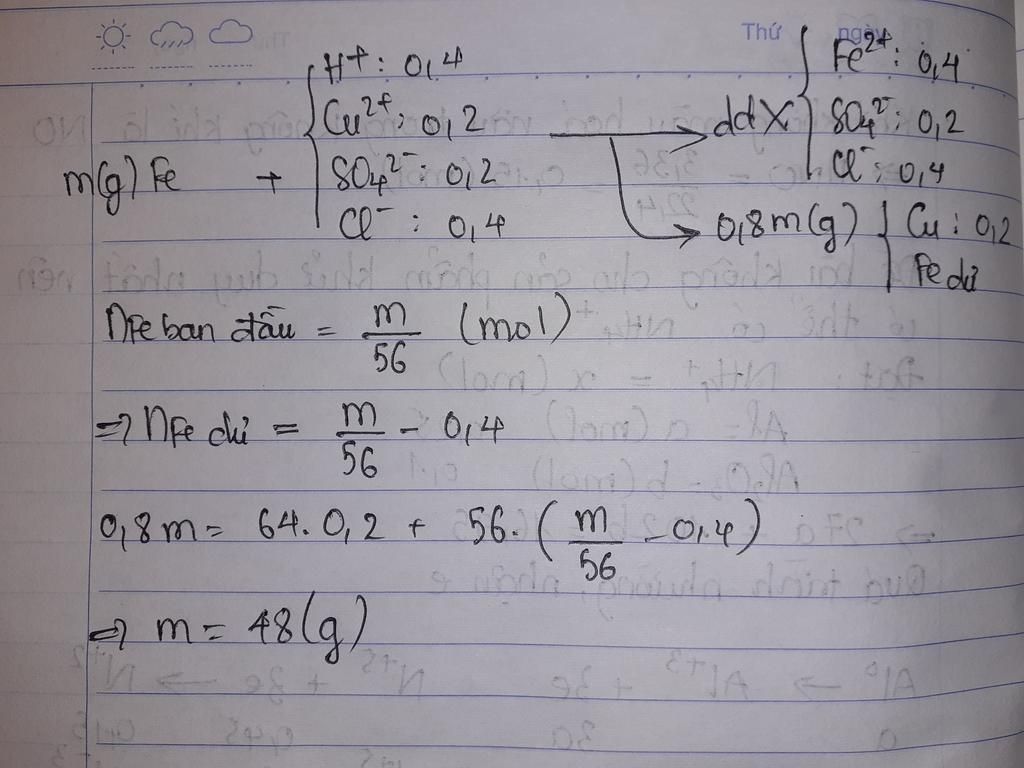 Thứ ngày
m(g) Fe + { H+ : 0,4
Cu2+ : 0,2
SO4 2- : 0,2
Cl- : 0,4
→ ddX { Fe2+ : 0,4
SO4 2- : 0,2
Cl- : 0,4
→ 0,8m(g) { Cu : 0,2
Fe dư
nFe ban đầu = m/56 (mol)
=> nFe dư = m/56 - 0,4
0,8m = 64.0,2 + 56.(m/56 - 0,4)
=> m = 48(g)